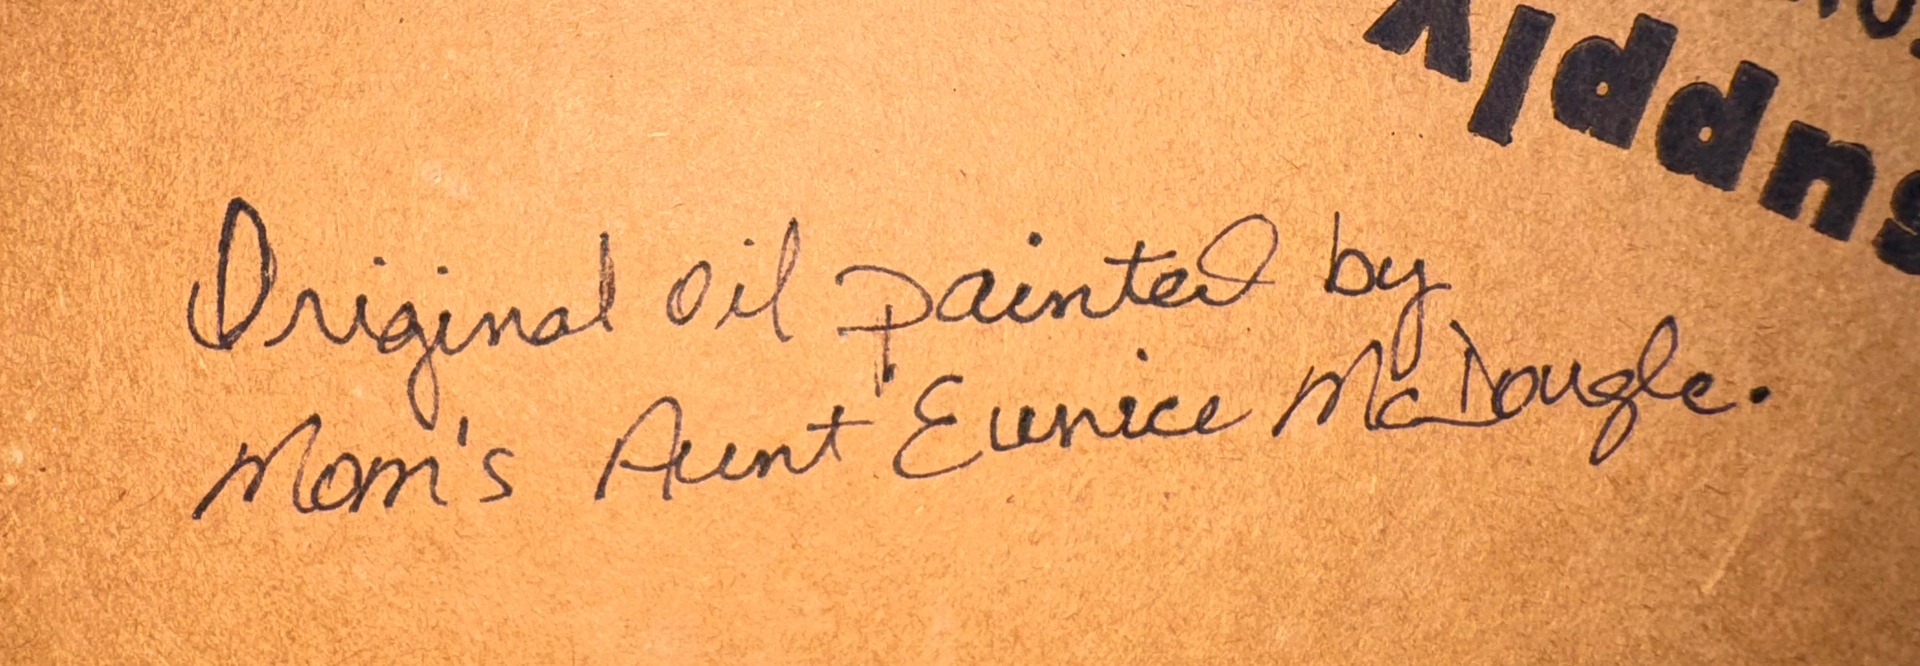 supply
Original oil painted by
Mom's Aunt Eunice McDougle.